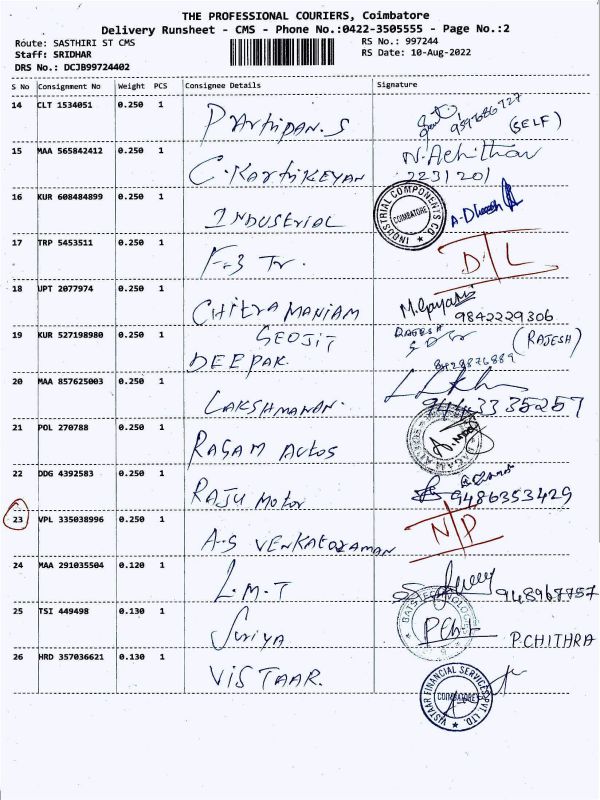 THE PROFESSIONAL COURIERS, Coimbatore
Delivery Runsheet - CMS - Phone No.:0422-3505555 - Page No.:2
Route: SASTHIRI ST CMS
RS No.: 997244
Staff: SRIDHAR
RS Date: 10-Aug-2022
DRS No.: DCJB99724402
S No Consignment No Weight PCS Consignee Details Signature
14 CLT 1534051 0.250 1 P.Arthipan. S (SELF)
15 MAA 565842412 0.250 1 C. Karthikeyan N. Achithan
223120/
16 KUR 608484899 0.250 1 INDUSTRIAL INDUSTRIAL COMPONENTS CO. COIMBATORE
17 TRP 5453511 0.250 1 D/L
18 UPT 2077974 0.250 1 CHITRA MANIAM M. Gayatri
9842229306
19 KUR 527198980 0.250 1 GEOJIT RAJESH (RAJESH)
DEEPAK. 8428876889
20 MAA 857625003 0.250 1 LAKSHMANAN. 9443335257
21 POL 270788 0.250 1 RAGAM Autos
22 DDG 4392583 0.250 1 RAJU Motor 9486353429
23 VPL 335038996 0.250 1 A.S VENKATARAMAN N/P
24 MAA 291035504 0.120 1 L.M.T 948967757
25 TSI 449498 0.130 1 Suriya P.CHITHRA
26 HRD 357036621 0.130 1 VISTAAR. VISTAAR FINANCIAL SERVICES PVT. LTD. COIMBATORE